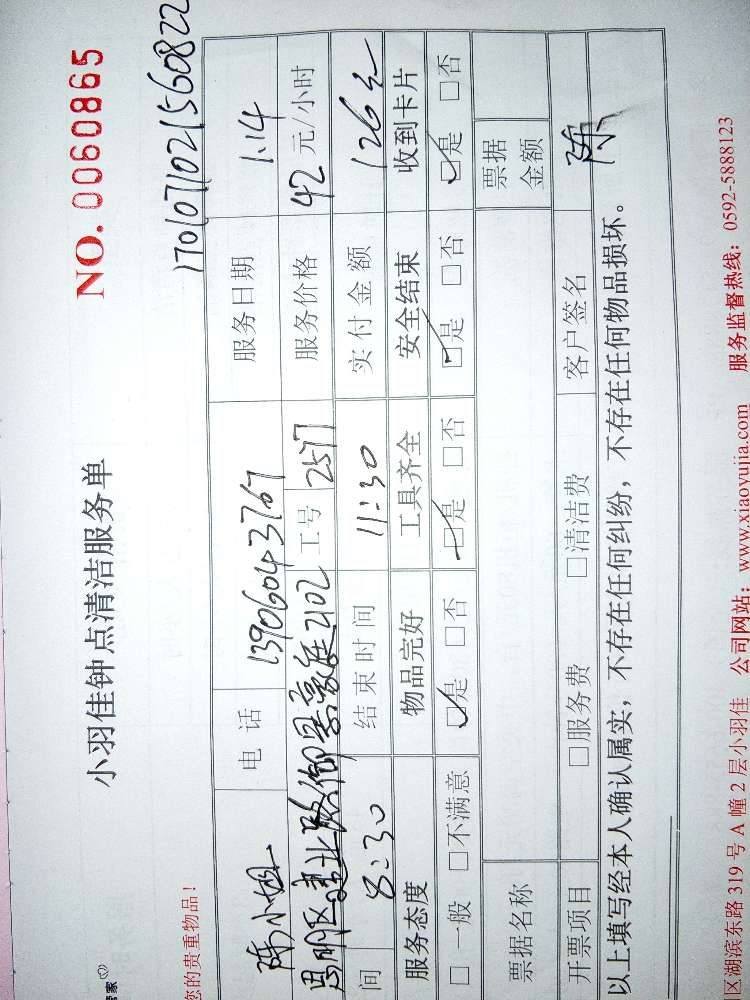 管家
小羽佳钟点清洁服务单
NO. 0060865
您的贵重物品!
17010710215 60822
陈小姐 电话 13906043767 服务日期 1.14
思明区建业路御景豪庭2102 工号 2577 服务价格 42元/小时
间 8:30 结束时间 11:30 实付金额 126元
服务态度 物品完好 工具齐全 安全结束 收到卡片
□一般 □不满意 □是 □否 □是 □否 □是 □否 □是 □否
票据名称 票据金额
开票项目 □服务费 □清洁费 客户签名 陈
以上填写经本人确认属实,不存在任何纠纷,不存在任何物品损坏。
区湖滨东路319号A幢2层小羽佳 公司网站:www.xiaoyujia.com 服务监督热线:0592-5888123